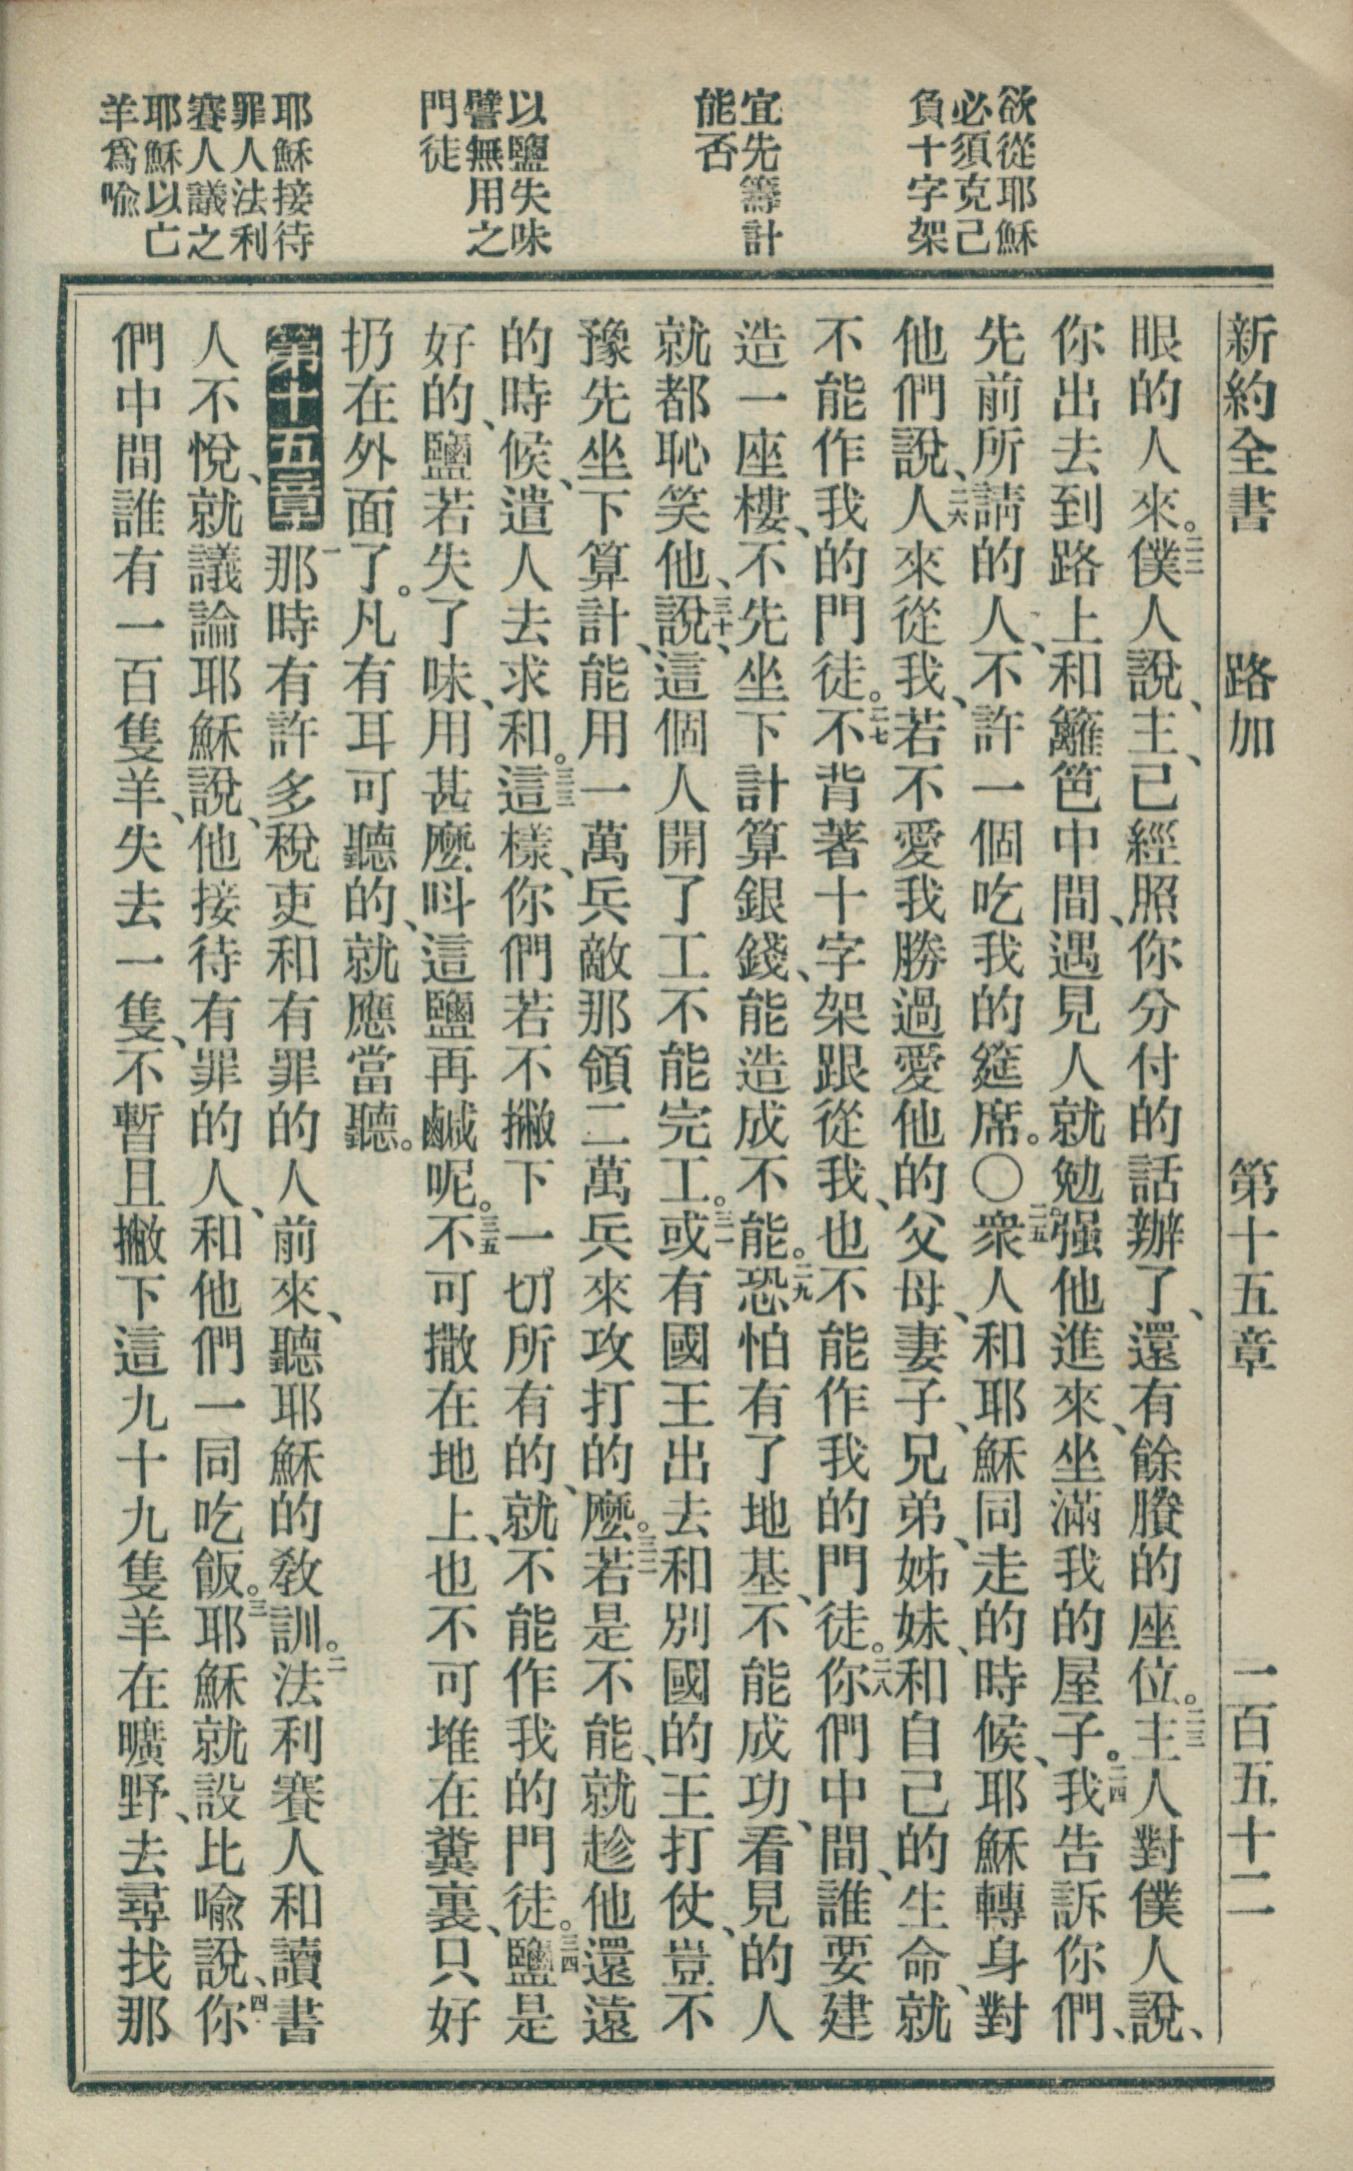 新約全書　路加　第十五章　一百五十二
欲從耶穌
必須克己
負十字架
宜先籌計
能否
以鹽失味
譬無用之
門徒
耶穌接待
罪人法利
賽人議之
耶穌以亡
羊爲喩
眼的人來。二二僕人說、主、已經照你分付的話辦了、還有餘賸的座位。二三主人對僕人說、
你出去到路上和籬笆中間、遇見人就勉强他進來、坐滿我的屋子。二四我告訴你們、
先前所請的人、不許一個吃我的筵席。〇二五衆人和耶穌同走的時候、耶穌轉身對
他們說、二六人來從我、若不愛我勝過愛他的父母、妻子、兄弟、姊妹、和自己的生命、就
不能作我的門徒。二七不背著十字架跟從我、也不能作我的門徒。二八你們中間、誰要建
造一座樓、不先坐下計算銀錢、能造成不能。二九恐怕有了地基、不能成功、看見的人
就都恥笑他、三十說、這個人開了工不能完工。三一或有國王出去和別國的王打仗、豈不
豫先坐下算計、能用一萬兵敵那領二萬兵來攻打的麽。三二若是不能、就趁他還遠
的時候、遣人去求和。三三這樣、你們若不撇下一切所有的、就不能作我的門徒。三四鹽是
好的、鹽若失了味、用甚麽呌這鹽再鹹呢。三五不可撒在地上、也不可堆在糞裏、只好
扔在外面了。凡有耳可聽的、就應當聽。
第十五章　一那時有許多稅吏和有罪的人前來、聽耶穌的敎訓。二法利賽人和讀書
人不悅、就議論耶穌說、他接待有罪的人、和他們一同吃飯。三耶穌就設比喩說、四你
們中間誰有一百隻羊、失去一隻、不暫且撇下這九十九隻羊在曠野、去尋找那